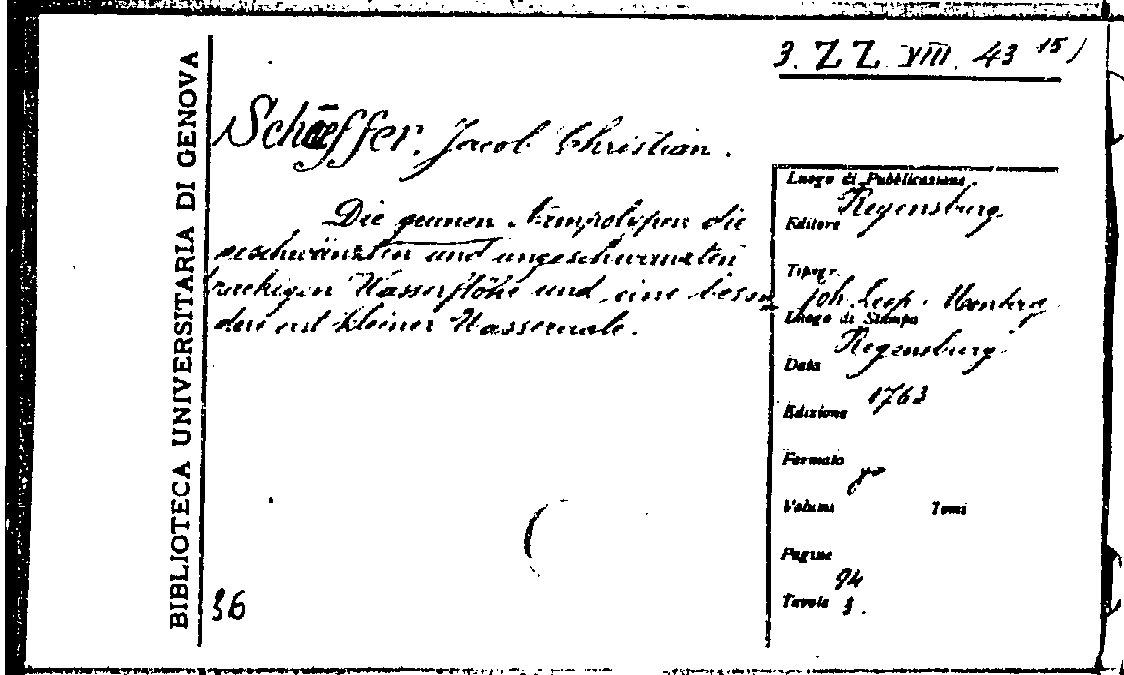 BIBLIOTECA UNIVERSITARIA DI GENOVA
3. ZZ. VIII. 43 15)
Schäeffer, Jacob Christian.
Die geunen Armpolypen die
geschwänzten und ungeschwanzten
zackigen Wasserflöhe und eine beson
dere art kleiner Wasseraale.
Luogo di Pubblicazione
Regensburg
Editore
Tipogr.
Joh. Leop.
Luogo di Stampa
Regensburg
Data
1763
Edizione
Formato
Volumi Tomi
Pagine
94
Tavole 3.
36